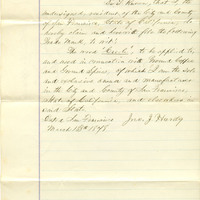 Know, that I, the
undersigned, resident of the City and County
of San Francisco State of California, do
hereby claim and file the following
Trade Mark, to wit:
The word to be applied to
and used in connection with Ground Coffee
and Ground Spices, of which I am the sole
and exclusive owner and manufacturer
in the City and County of San Francisco,
State of California, and elsewhere in
said State.
Dated San Francisco
March 18th 1878